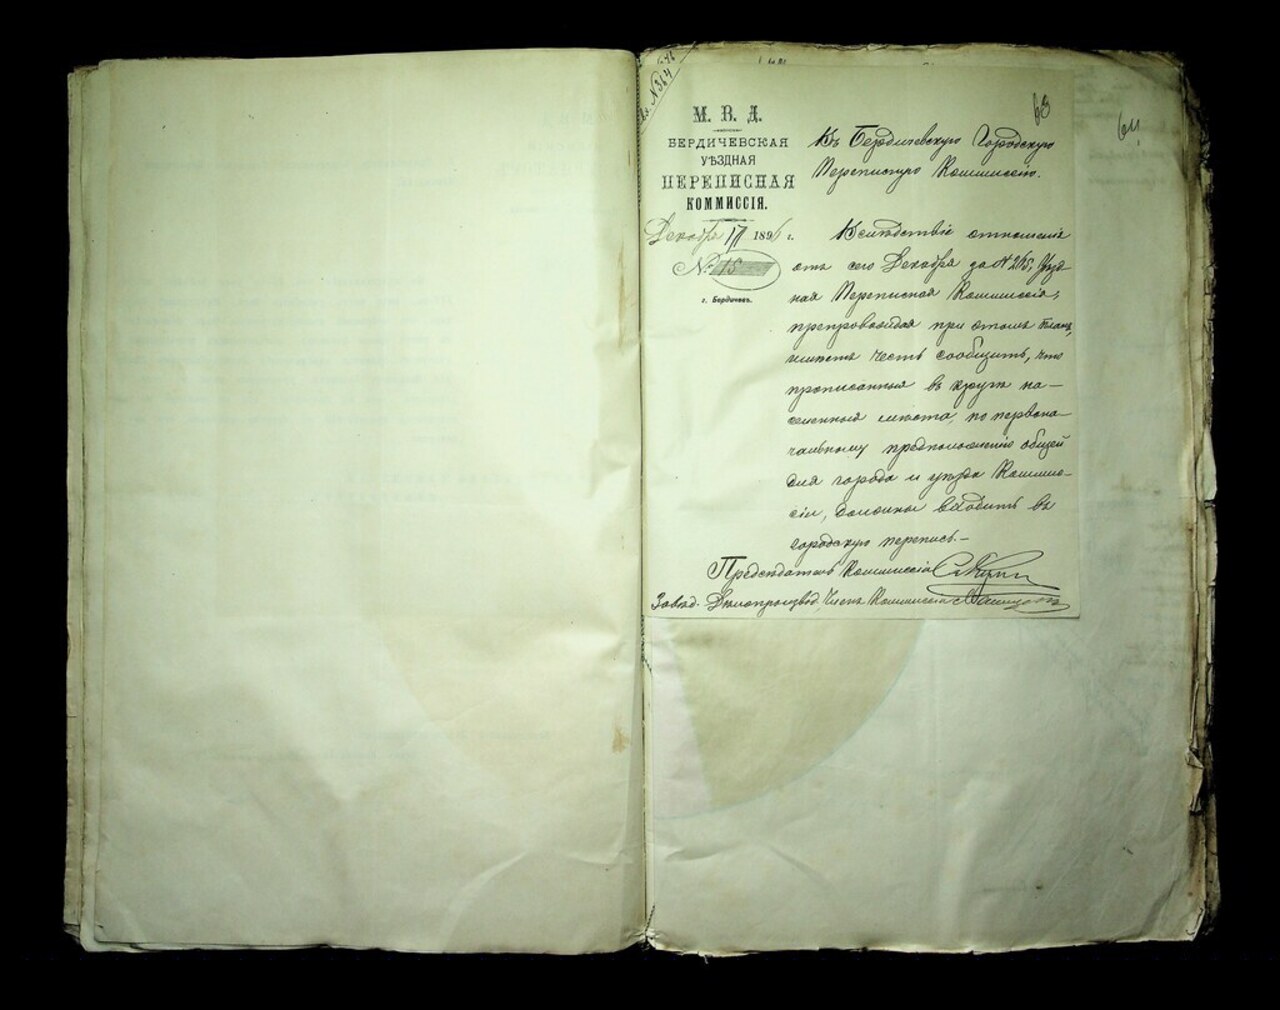 № 364
63
64
М. В. Д.
БЕРДИЧЕВСКАЯ
УѢЗДНАЯ
ПЕРЕПИСНАЯ
КОММИССІЯ.
Декабря 17 1896 г.
№ 15
г. Бердичевъ.
Въ Бердичевскую Городскую
Переписную Коммиссію.
Вслѣдствіе отношенія
отъ сего Декабря за № 265, Уѣзд-
ная Переписная Коммиссія,
препровождая при этомъ планъ,
имѣетъ честь сообщить, что
прописанныя въ кругѣ на-
селенныя мѣста, по первона-
чальному предположенію общей
для города и уѣзда Коммис-
сіи, должны входить въ
городскую перепись.-
Предсѣдатель Коммиссіи
Завѣд. Дѣлопроизвод. Членъ Коммиссіи